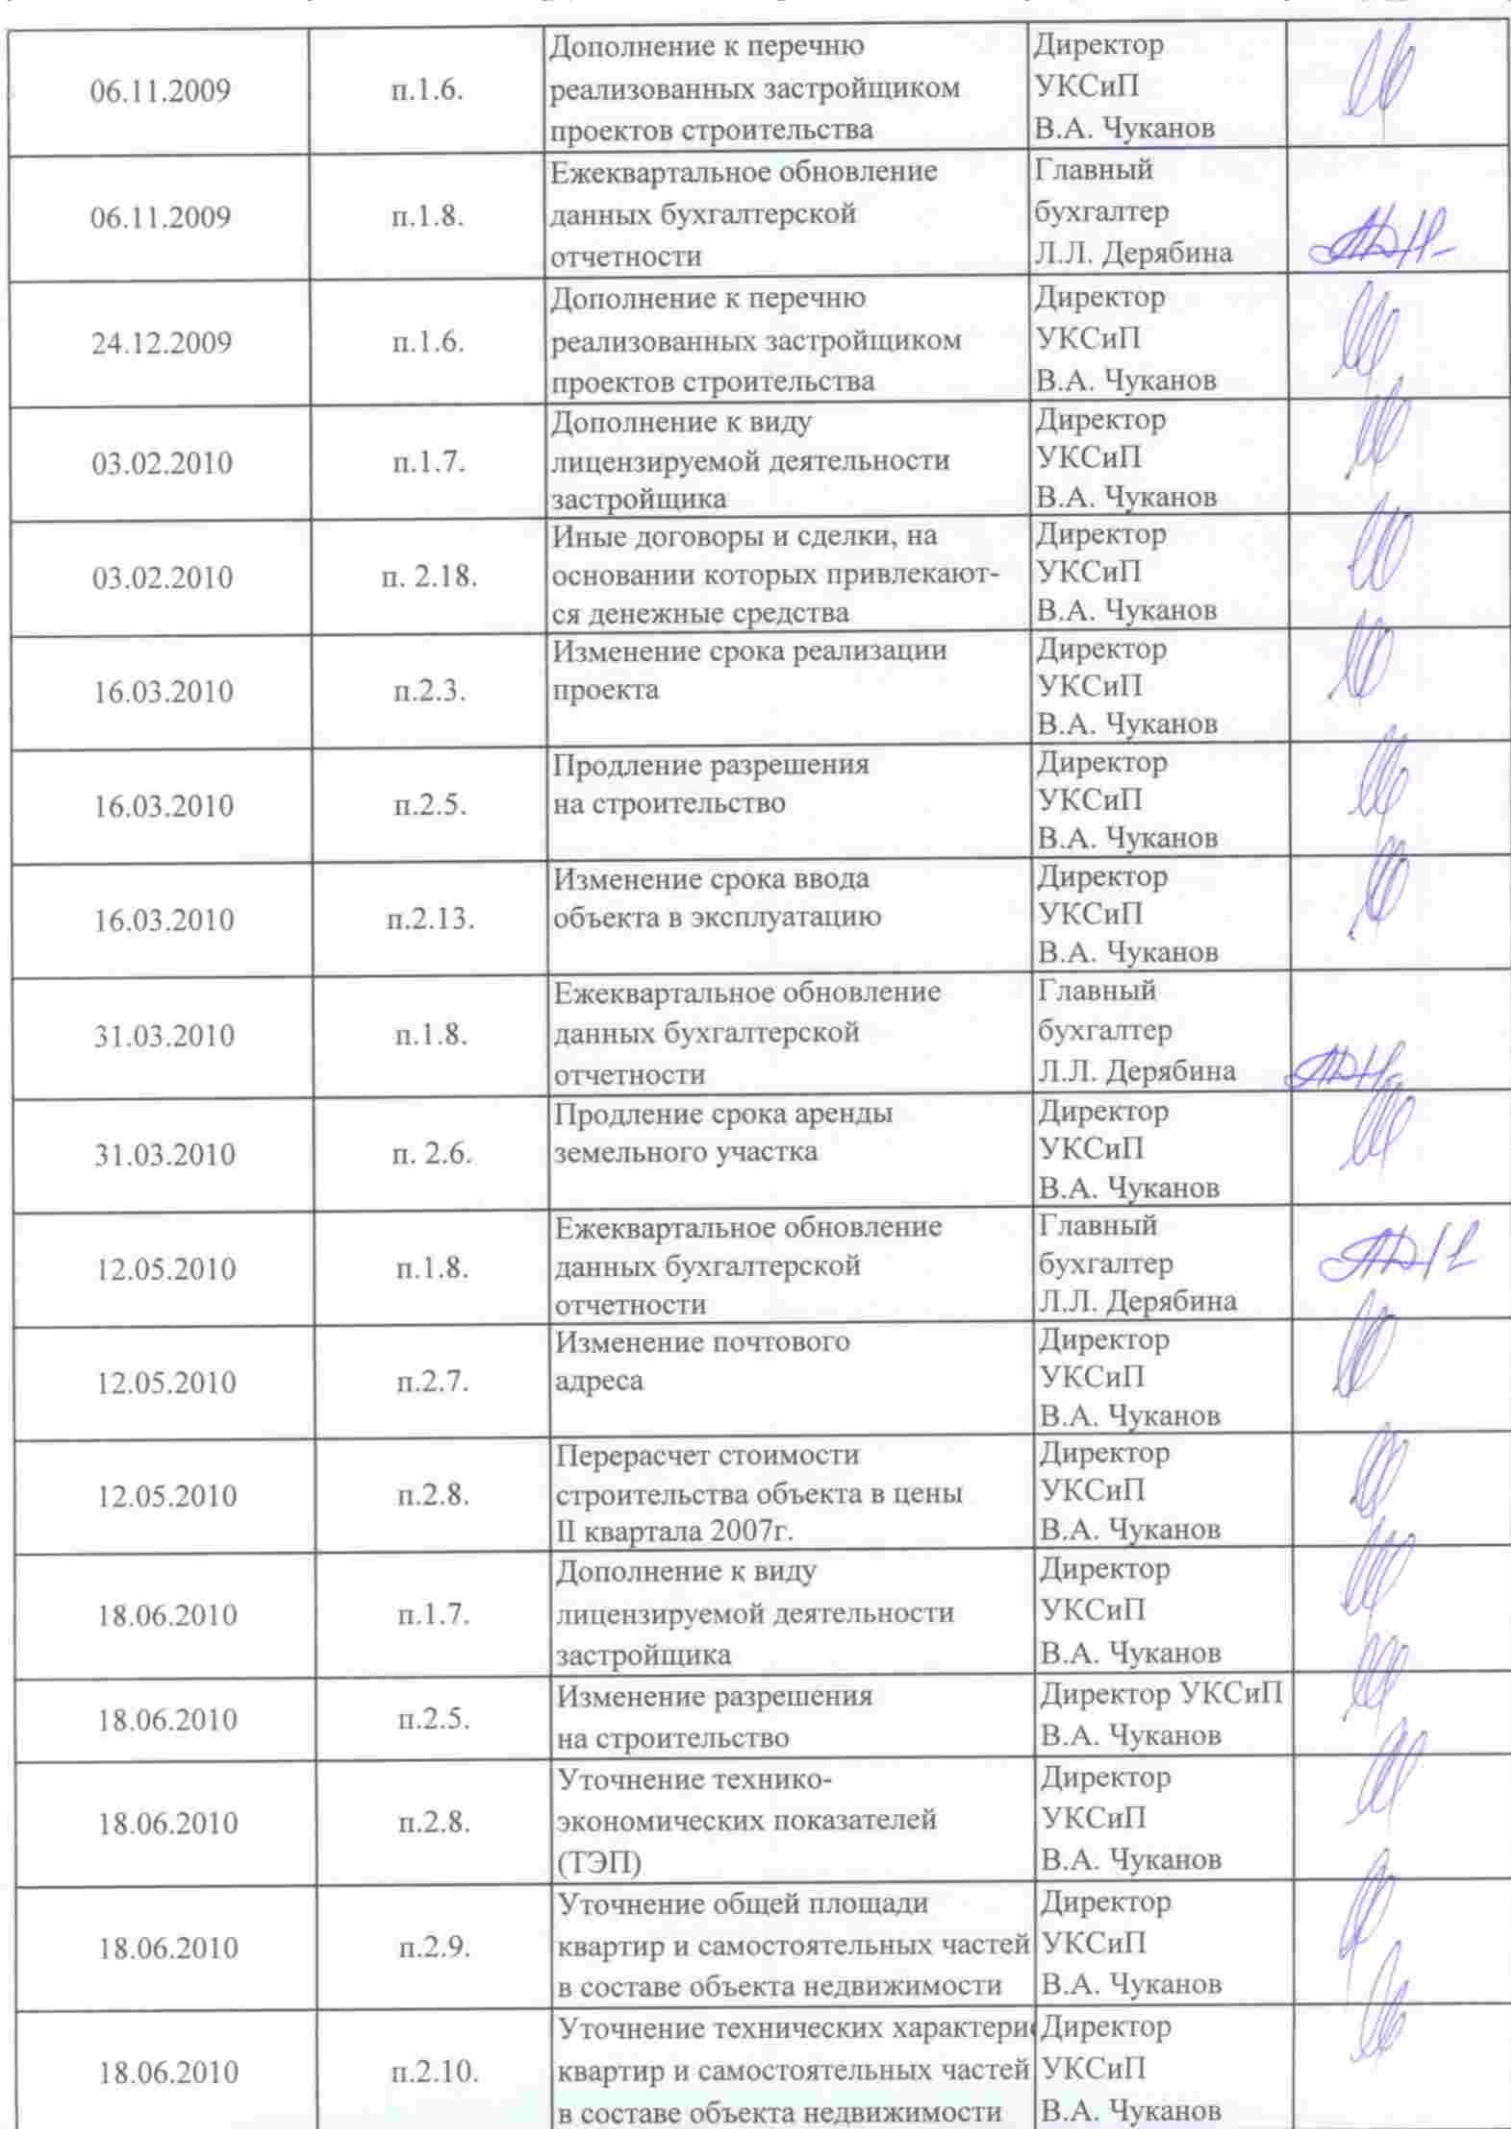 06.11.2009
п.1.6.
Дополнение к перечню
реализованных застройщиком
проектов строительства
Директор
УКСиП
В.А. Чуканов
06.11.2009
п.1.8.
Ежеквартальное обновление
данных бухгалтерской
отчетности
Главный
бухгалтер
Л.Л. Дерябина
24.12.2009
п.1.6.
Дополнение к перечню
реализованных застройщиком
проектов строительства
Директор
УКСиП
В.А. Чуканов
03.02.2010
п.1.7.
Дополнение к виду
лицензируемой деятельности
застройщика
Директор
УКСиП
В.А. Чуканов
03.02.2010
п. 2.18.
Иные договоры и сделки, на
основании которых привлекают-
ся денежные средства
Директор
УКСиП
В.А. Чуканов
16.03.2010
п.2.3.
Изменение срока реализации
проекта
Директор
УКСиП
В.А. Чуканов
16.03.2010
п.2.5.
Продление разрешения
на строительство
Директор
УКСиП
В.А. Чуканов
16.03.2010
п.2.13.
Изменение срока ввода
объекта в эксплуатацию
Директор
УКСиП
В.А. Чуканов
31.03.2010
п.1.8.
Ежеквартальное обновление
данных бухгалтерской
отчетности
Главный
бухгалтер
Л.Л. Дерябина
31.03.2010
п. 2.6.
Продление срока аренды
земельного участка
Директор
УКСиП
В.А. Чуканов
12.05.2010
п.1.8.
Ежеквартальное обновление
данных бухгалтерской
отчетности
Главный
бухгалтер
Л.Л. Дерябина
12.05.2010
п.2.7.
Изменение почтового
адреса
Директор
УКСиП
В.А. Чуканов
12.05.2010
п.2.8.
Перерасчет стоимости
строительства объекта в цены
II квартала 2007г.
Директор
УКСиП
В.А. Чуканов
18.06.2010
п.1.7.
Дополнение к виду
лицензируемой деятельности
застройщика
Директор
УКСиП
В.А. Чуканов
18.06.2010
п.2.5.
Изменение разрешения
на строительство
Директор УКСиП
В.А. Чуканов
18.06.2010
п.2.8.
Уточнение технико-
экономических показателей
(ТЭП)
Директор
УКСиП
В.А. Чуканов
18.06.2010
п.2.9.
Уточнение общей площади
квартир и самостоятельных частей
в составе объекта недвижимости
Директор
УКСиП
В.А. Чуканов
18.06.2010
п.2.10.
Уточнение технических характери
квартир и самостоятельных частей
в составе объекта недвижимости
Директор
УКСиП
В.А. Чуканов